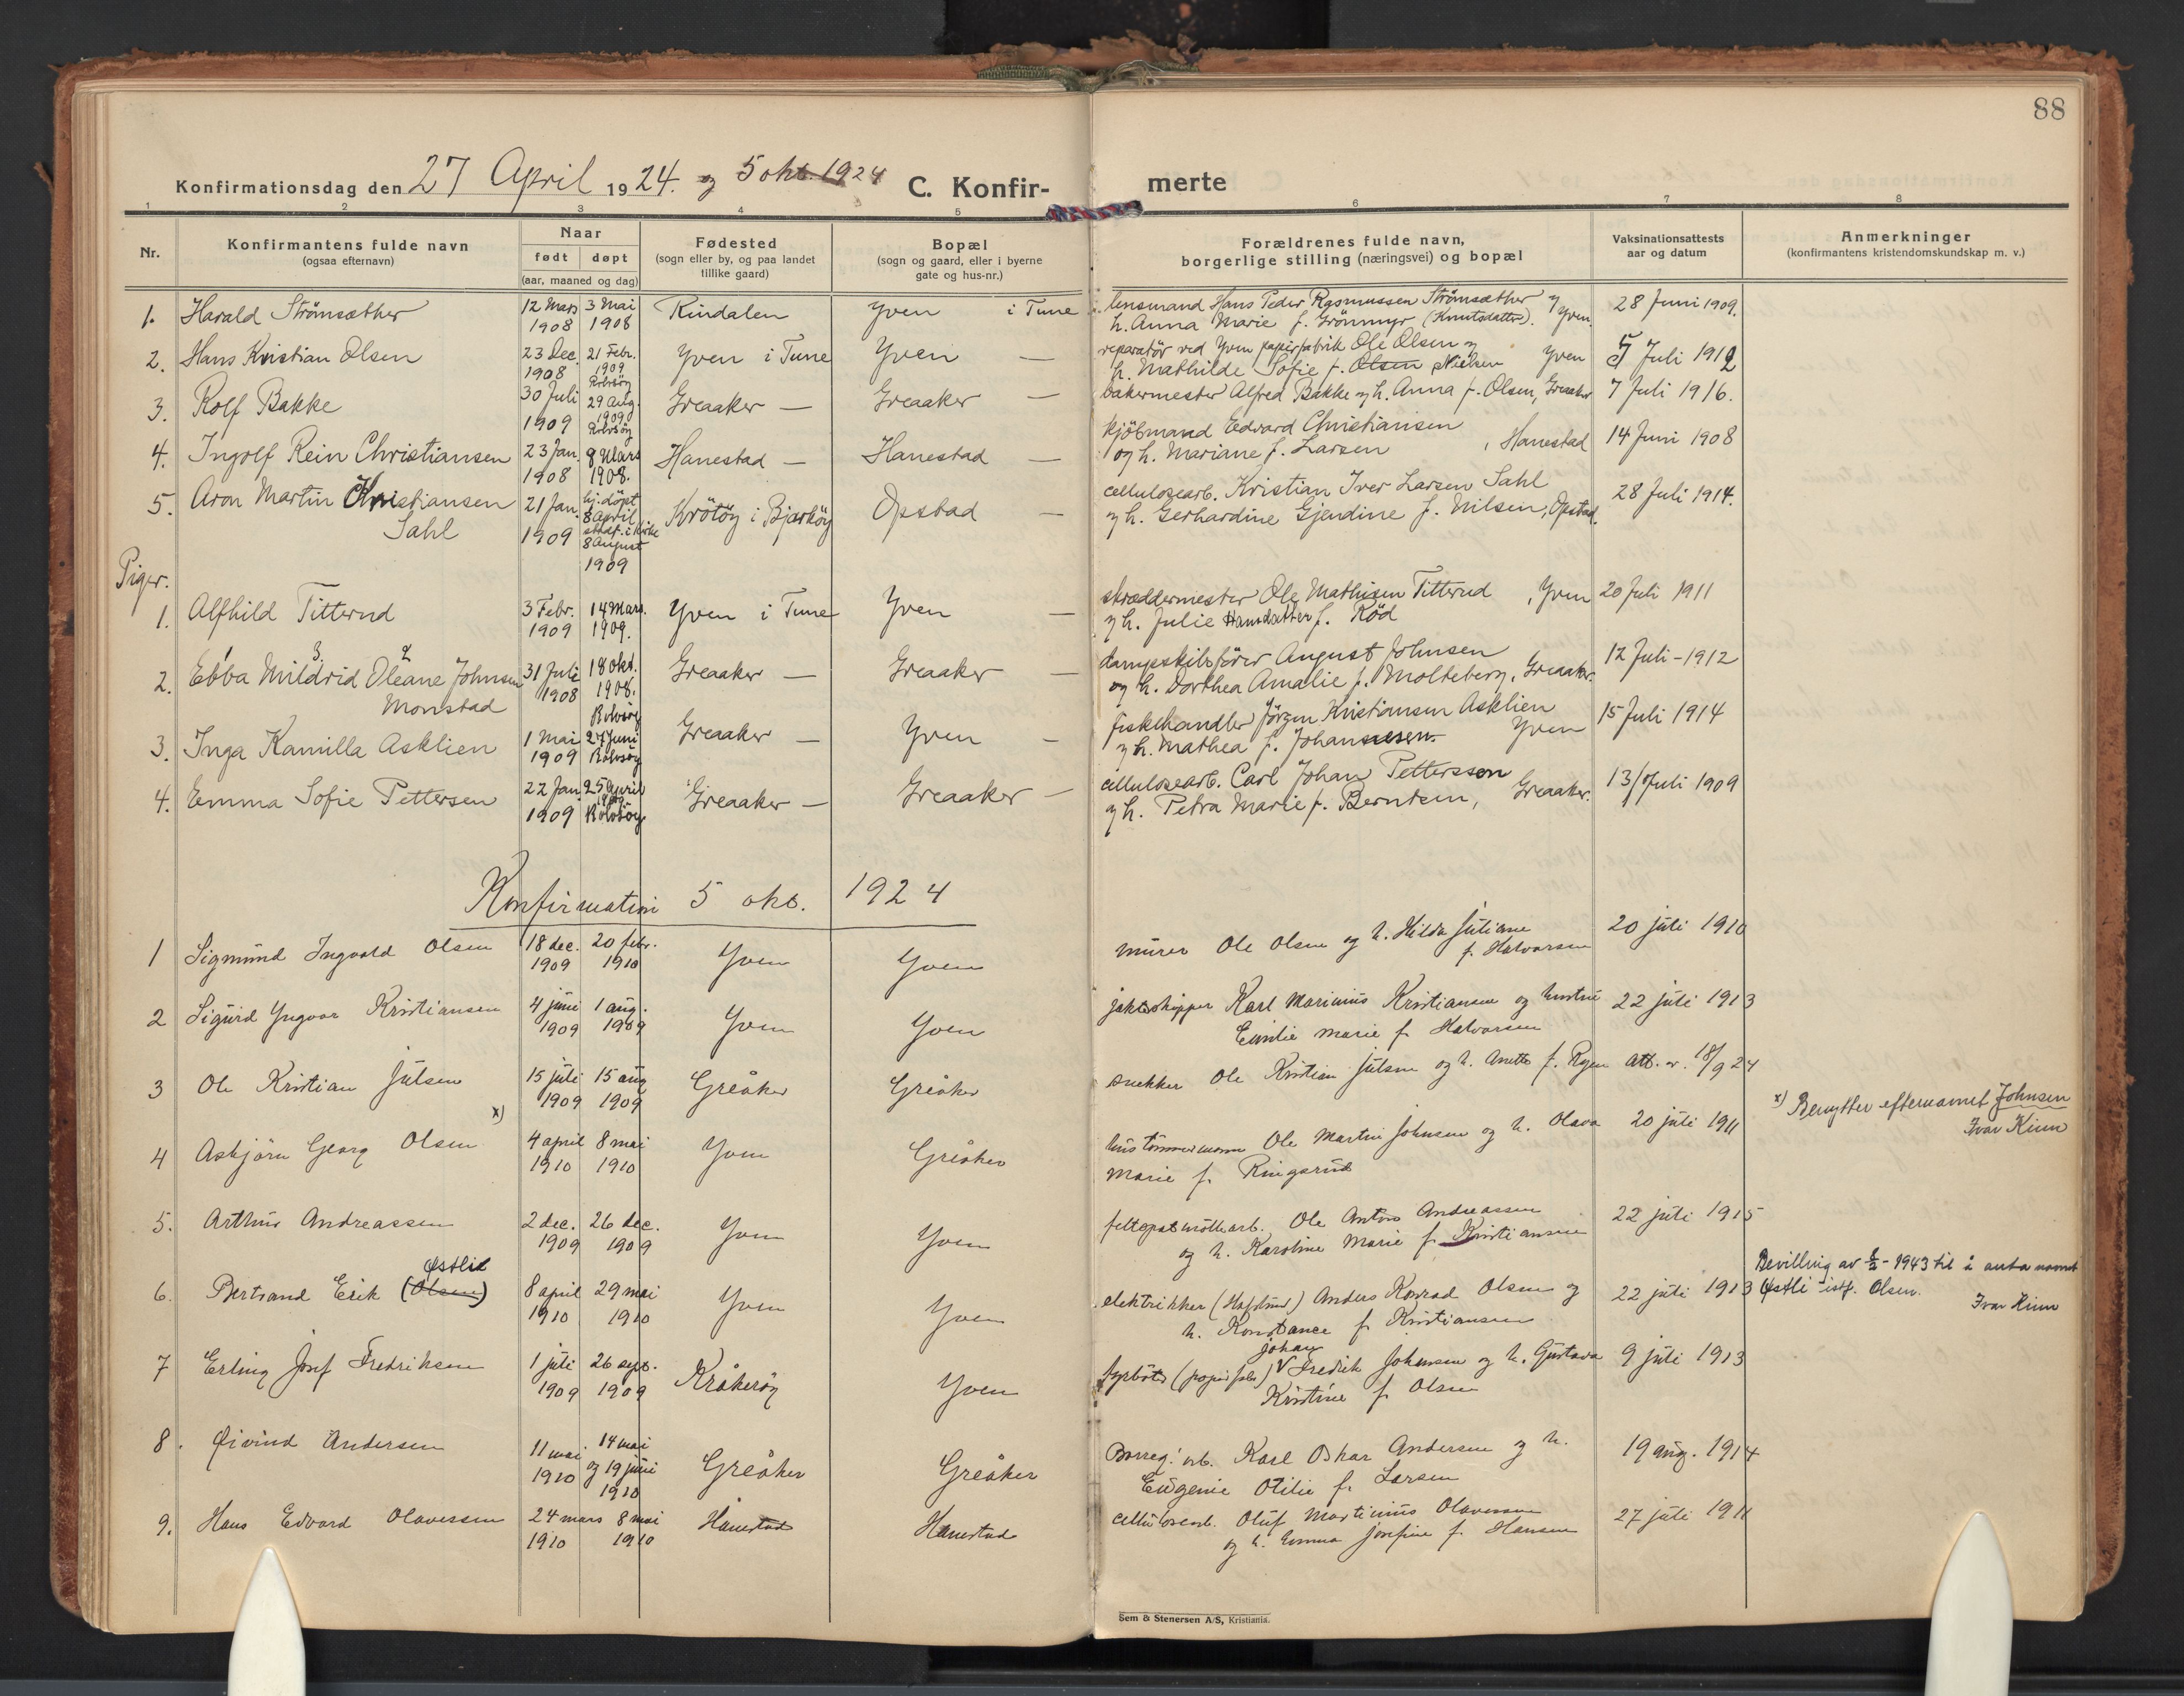 88
Konfirmationsdag den 27 April 1924. og 5 okt. 1924 C. Konfir- merte
1 2 3 4 5 6 7 8
Nr. Konfirmantens fulde navn (ogsaa efternavn) Naar født døpt (aar, maaned og dag) Fødested (sogn eller by, og paa landet tillike gaard) Bopæl (sogn og gaard, eller i byerne gate og hus-nr.) Forældrenes fulde navn, borgerlige stilling (næringsvei) og bopæl Vaksinationsattests aar og datum Anmerkninger (konfirmantens kristendomskundskap m. v.)
1. Harald Strömsæther 12 Mars 1908 3 Mai 1908 Rindalen Yven i Tune lensmand Hans Peder Rasmussen Strömsæther og h. Anna Marie f. Grönmyr (Knutsdatter). Yven. 28 Juni 1909.
2. Hans Kristian Olsen 23 Dec. 1908 21 Febr. 1909 Rolvsöy Yven i Tune Yven — reparatör ved Yven papirfabrik Ole Olsen og h. Mathilde Sofie f. Olsen Nielsen Yven 5 Juli 1912
3. Rolf Bakke 30 Juli 1909 29 Aug. 1909 Rolvsöy Greaaker — Greaaker — bakermester Alfred Bakke og h. Anna f. Olsen, Greaaker 7 Juli 1916.
4. Ingolf Rein Christiansen 23 Jan. 1908 8 Mars 1908. Hanestad — Hanestad — kjöbmand Edvard Christiansen og h. Mariane f. Larsen, Hanestad 14 Juni 1908
5. Aron Martin Kristiansen Sahl 21 Jan. 1909 hj. döpt 8 april stadf. i kirke 8 August 1909 Krötöy i Bjarköy Opstad — cellulosearb. Kristian Iver Larsen Sahl og h. Gerhardine Gjendine f. Nilsen, Opstad. 28 Juli 1914.
Piger.
1. Alfhild Titterud 3 Febr. 1909 14 Mars. 1909. Yven i Tune Yven — skræddermester Ole Mathisen Titterud og h. Julie Hansdatter f. Röd, Yven 20 Juli 1911
2. Ebba Mildrid 3 Oleane 2 Johnsen Monstad 31 Juli 1908 18 Okt. 1908. Rolvsöy Greaaker — Greaaker — dampskibsförer August Johnsen og h. Dorthea Amalie f. Molteberg, Greaaker. 12 Juli - 1912
3. Inga Kamilla Asklien 1 Mai 1909 27 Juni Rolvsöy Greaaker — Yven — fiskehandler Jörgen Kristiansen Asklien og h. Mathea f. Johannesen. Yven 15 Juli 1914
4. Emma Sofie Pettersen 22 Jan. 1909 25 April 1909 Rolvsöy Greaaker — Greaaker — cellulosearb. Carl Johan Pettersson og h. Petra Marie f. Berntsen, Greaaker. 13/Juli 1909
Konfirmation 5 okt. 1924
1 Sigmund Ingvald Olsen 18 dec. 1909 20 febr. 1910 Yven Yven murer Ole Olsen og h. Hilda Juliane f. Halvorsen 20 juli 1910
2 Sigurd Yngvar Kristiansen 4 juni 1909 1 aug. 1909 Yven Yven jakteskipper Karl Marinius Kristiansen og hustru Emilie Marie f. Halvorsen 22 juli 1913
3 Ole Kristian Julsen 15 juli 1909 15 aug 1909 Greåker Greåker snekker Ole Kristian Julsen og h. Anette f. Ryen Att. av 18/9 24
4 Asbjörn Georg Olsen x) 4 april 1910 8 mai 1910 Yven Greåker hustömmermann Ole Martin Johnsen og h. Olava Marie f. Ringsrud 20 juli 1911 x) Benytter efternavnet Johnsen Ivar Kinn
5. Arthur Andreassen 2 dec. 1909 26 dec. 1909 Yven Yven Ole Anton Andreassen og h. Karoline Marie f. Kristiansen 22 juli 1915
6. Bertrand Erik (Olsen) Østli 8 april 1910 29 mai 1910 Yven Yven elektrikker (Hafslund) Anders Konrad Olsen og h. Konstance f. Kristiansen 22 juli 1913 Bevilling av - 1943 til å anta navnet Østli istf. Olsen. Ivar Kinn
7 Erling Josef Fredriksen 1 juli 1909 26 sept. 1909 Kråkeröy Yven fyrböter (papirfabr) Johan Fredrik Johansen og h. Gustava Kristine f. Olsen 9 juli 1913
8. Øivind Andersen 11 mai 1910 14 mai og 19 juni 1910 Greåker Greåker Borreg. arb. Karl Oskar Andersen og h. Eugenie Otilie f. Larsen 19 aug. 1914
9. Hans Edvard Olavessen 24 mars 1910 8 mai 1910 Hanestad Hanestad cellulosearb. Oluf Martinius Olavessen og h. Emma Josefine f. Hansen 27 juli 1911
Sem & Stenersen A/S, Kristiania.